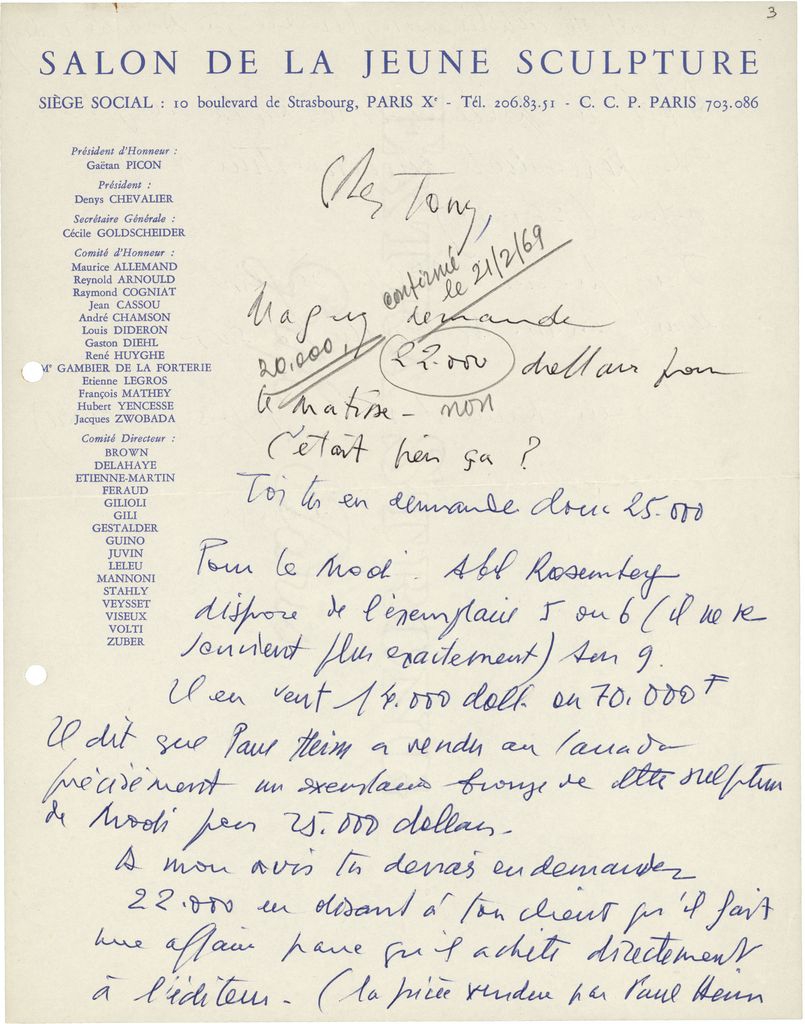 3
SALON DE LA JEUNE SCULPTURE
SIÈGE SOCIAL : 10 boulevard de Strasbourg, PARIS Xᵉ - Tél. 206.83.51 - C. C. P. PARIS 703.086
Président d'Honneur :
Gaëtan PICON
Président :
Denys CHEVALIER
Secrétaire Générale :
Cécile GOLDSCHEIDER
Comité d'Honneur :
Maurice ALLEMAND
Reynold ARNOULD
Raymond COGNIAT
Jean CASSOU
André CHAMSON
Louis DIDERON
Gaston DIEHL
René HUYGHE
Mᵉ GAMBIER DE LA FORTERIE
Etienne LEGROS
François MATHEY
Hubert YENCESSE
Jacques ZWOBADA
Comité Directeur :
BROWN
DELAHAYE
ETIENNE-MARTIN
FERAUD
GILIOLI
GILI
GESTALDER
GUINO
JUVIN
LELEU
MANNONI
STAHLY
VEYSSET
VISEUX
VOLTI
ZUBER
Cher Tony,
confirmé
le 21/2/69
Maguy demande
20.000, 22.000 dollars pour
le Matisse - non
C'était bien ça ?
Toi tu en demande donc 25.000
Pour le Modi. Abel Rosemberg
dispose de l'exemplaire 5 ou 6 (il ne se
souvient plus exactement) sur 9.
Il en veut 14.000 doll. ou 70.000 F
Il dit que Paul Heim a vendu au Canada
précisément un exemplaire bronze de cette sculpture
de Modi pour 25.000 dollars.
A mon avis tu devrais en demander
22.000 en disant à ton client qu'il fait
une affaire parce qu'il achète directement
à l'éditeur. (la pièce vendue par Paul Heim